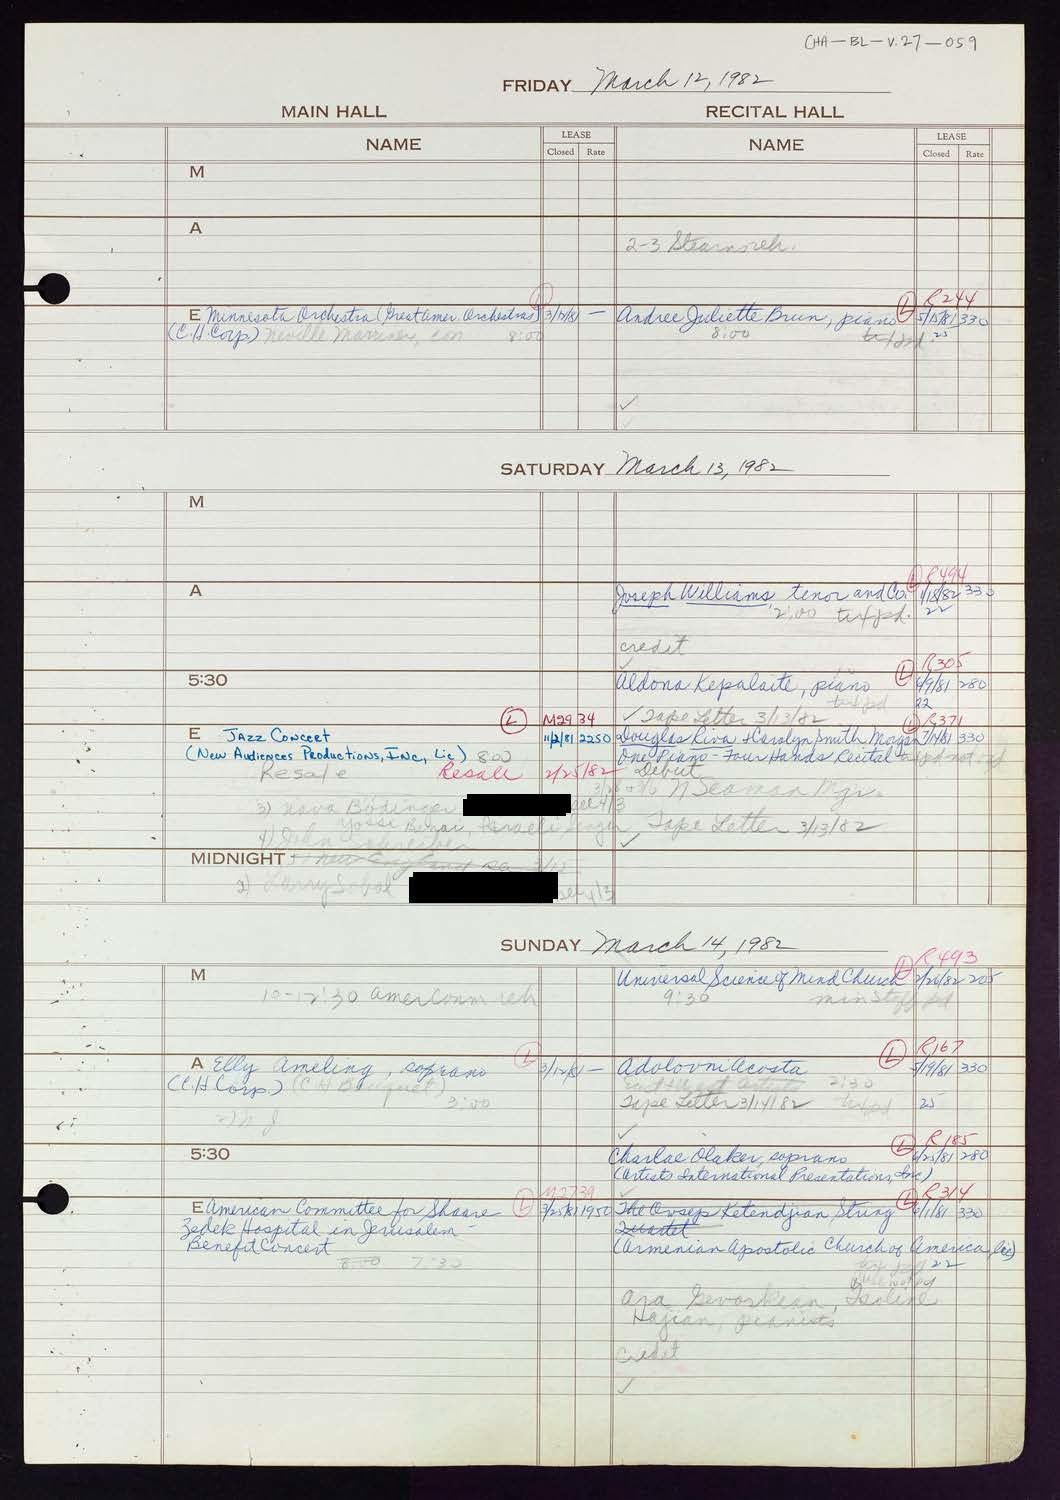 CHA-BL-V.27-059
FRIDAY March 12, 1982
MAIN HALL RECITAL HALL
NAME LEASE Closed Rate NAME LEASE Closed Rate
M
A
2-3 Stearns reh.
L L R244
E Minnesota Orchestra (Great Amer. Orchestras) 3/12/81 — Andree Juliette Brun, piano 5/15/81 330
(C.H. Corp) Neville Marriner, con 8:00 8:00 25
✓
SATURDAY March 13, 1982
M
L R494
A Joseph Williams, tenor and Co. 1/18/82 330
2:00 txt pd. 22
credit
✓ L R305
5:30 Aldona Kepalaite, piano 6/9/81 280
txt pd 22
✓ Tape Letter 3/13/82
L M2934 L R371
E Jazz Concert 11/2/81 2250 Douglas Riva + Carolyn Smith Morgan 7/14/81 330
(New Audiences Productions, Inc, Lic) 8:00 One Piano - Four Hands Recital
Resale Resale 2/25/82 Debut
N Seaman Mgr.
3) Nava Bodinger 4/3
Yossi Israeli Singer Tape Letter 3/13/82
4) John ✓
MIDNIGHT
2) Larry Sobol 4/3
SUNDAY March 14, 1982
L R493
M Universal Science of Mind Church 2/26/82 205
10-12:30 Amer Comm reh 9:30 min staff pd
L L R167
A Elly Ameling, soprano 3/12/81 — Adolovni Acosta 5/19/81 330
(C.H Corp.) (CH Bouquet) East & West Artists 2:30
3:00 Tape Letter 3/14/82 txt pd 25
✓
L R185
5:30 Charlae Olaker, soprano 280
(Artists International Presentations, Inc)
M2739 ✓ L R314
E American Committee for Shaare L 3/25/81 1950 The Ovsep Ketendjian String 6/1/81 330
Zedek Hospital in Jerusalem - Quartet
Benefit Concert (Armenian Apostolic Church of America, Lic)
8:00 7:30 22
Ara Gevorkian,
Hajian, pianists
Credit
✓